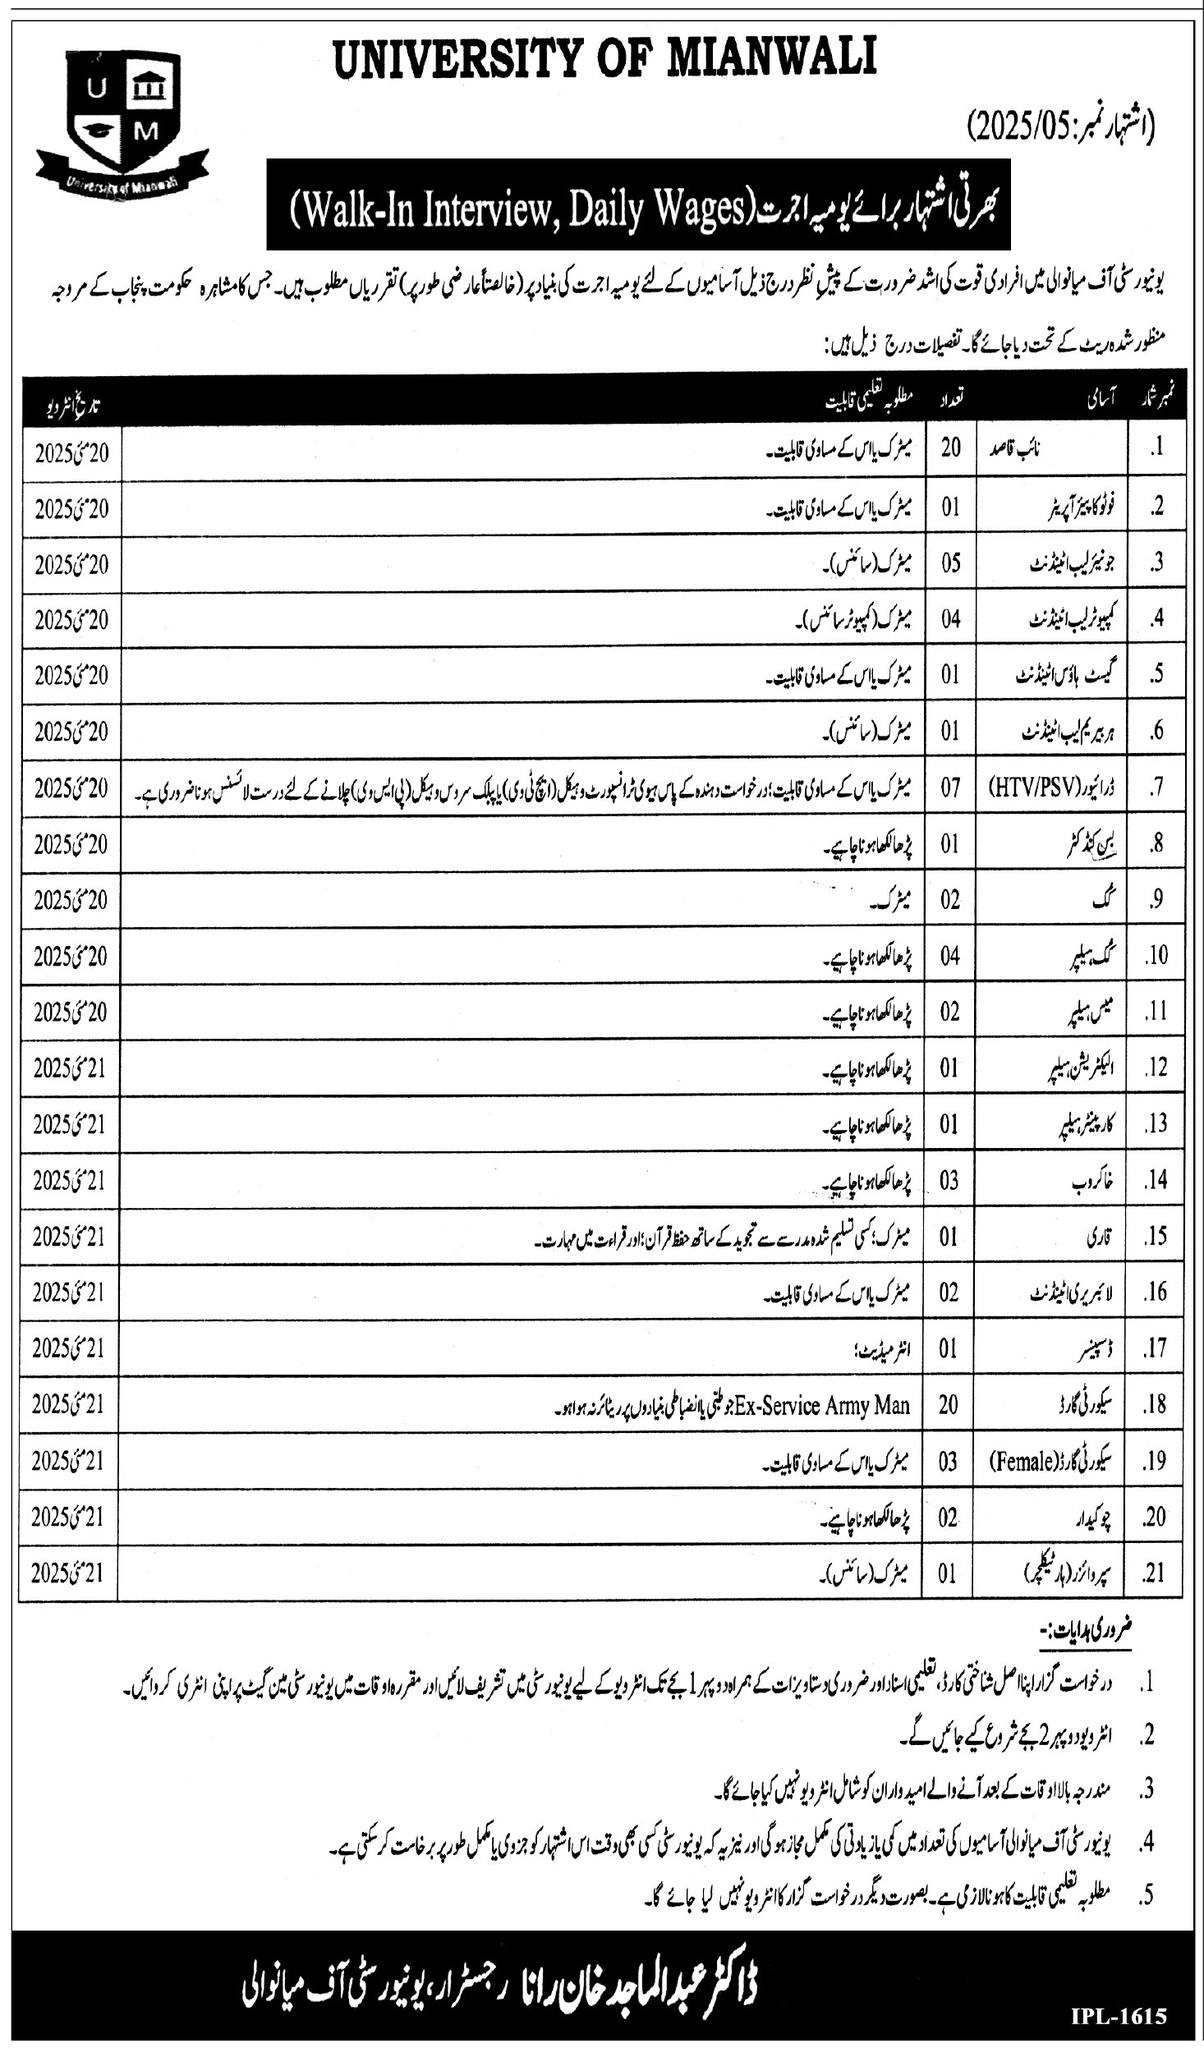 U
M
University of Mianwali
UNIVERSITY OF MIANWALI
(اشتہار نمبر: 2025/05)
بھرتی اشتہار برائے یومیہ اجرت (Walk-In Interview, Daily Wages)
یونیورسٹی آف میانوالی میں افرادی قوت کی اشد ضرورت کے پیشِ نظر درج ذیل آسامیوں کے لئے یومیہ اجرت کی بنیاد پر (خالصتاً عارضی طور پر) تقرریاں مطلوب ہیں۔ جس کا مشاہرہ حکومت پنجاب کے مروجہ
منظور شدہ ریٹ کے تحت دیا جائے گا۔ تفصیلات درج ذیل ہیں:
نمبر شمار آسامی تعداد مطلوبہ تعلیمی قابلیت تاریخ انٹرویو
1. نائب قاصد 20 میٹرک یا اس کے مساوی قابلیت۔ 20 مئی 2025
2. فوٹو کاپیئر آپریٹر 01 میٹرک یا اس کے مساوی قابلیت۔ 20 مئی 2025
3. جونیئر لیب اٹینڈنٹ 05 میٹرک (سائنس)۔ 20 مئی 2025
4. کمپیوٹر لیب اٹینڈنٹ 04 میٹرک (کمپیوٹر سائنس)۔ 20 مئی 2025
5. گیسٹ ہاؤس اٹینڈنٹ 01 میٹرک یا اس کے مساوی قابلیت۔ 20 مئی 2025
6. ہربیریم لیب اٹینڈنٹ 01 میٹرک (سائنس)۔ 20 مئی 2025
7. ڈرائیور (HTV/PSV) 07 میٹرک یا اس کے مساوی قابلیت؛ درخواست دہندہ کے پاس ہیوی ٹرانسپورٹ وہیکل (ایچ ٹی وی) یا پبلک سروس وہیکل (پی ایس وی) چلانے کے لئے درست لائسنس ہونا ضروری ہے۔ 20 مئی 2025
8. بس کنڈکٹر 01 پڑھا لکھا ہونا چاہیے۔ 20 مئی 2025
9. کُک 02 میٹرک۔ 20 مئی 2025
10. کُک ہیلپر 04 پڑھا لکھا ہونا چاہیے۔ 20 مئی 2025
11. میس ہیلپر 02 پڑھا لکھا ہونا چاہیے۔ 20 مئی 2025
12. الیکٹریشن ہیلپر 01 پڑھا لکھا ہونا چاہیے۔ 21 مئی 2025
13. کارپینٹر ہیلپر 01 پڑھا لکھا ہونا چاہیے۔ 21 مئی 2025
14. خاکروب 03 پڑھا لکھا ہونا چاہیے۔ 21 مئی 2025
15. قاری 01 میٹرک؛ کسی تسلیم شدہ مدرسے سے تجوید کے ساتھ حفظ قرآن؛ اور قراءت میں مہارت۔ 21 مئی 2025
16. لائبریری اٹینڈنٹ 02 میٹرک یا اس کے مساوی قابلیت۔ 21 مئی 2025
17. ڈسپینسر 01 انٹرمیڈیٹ؛ 21 مئی 2025
18. سیکورٹی گارڈ 20 Ex-Service Army Man جو طبّی یا انضباطی بنیادوں پر ریٹائر نہ ہوا ہو۔ 21 مئی 2025
19. سیکورٹی گارڈ (Female) 03 میٹرک یا اس کے مساوی قابلیت۔ 21 مئی 2025
20. چوکیدار 02 پڑھا لکھا ہونا چاہیے۔ 21 مئی 2025
21. سپروائزر (ہارٹیکلچر) 01 میٹرک (سائنس)۔ 21 مئی 2025
ضروری ہدایات:-
1. درخواست گزار اپنا اصل شناختی کارڈ، تعلیمی اسناد اور ضروری دستاویزات کے ہمراہ دوپہر 1 بجے تک انٹرویو کے لیے یونیورسٹی میں تشریف لائیں اور مقررہ اوقات میں یونیورسٹی مین گیٹ پر اپنی انٹری کروائیں۔
2. انٹرویو دوپہر 2 بجے شروع کیے جائیں گے۔
3. مندرجہ بالا اوقات کے بعد آنے والے امیدواران کو شامل انٹرویو نہیں کیا جائے گا۔
4. یونیورسٹی آف میانوالی آسامیوں کی تعداد میں کمی یا زیادتی کی مکمل مجاز ہوگی اور نیز یہ کہ یونیورسٹی کسی بھی وقت اس اشتہار کو جزوی یا مکمل طور پر برخاست کر سکتی ہے۔
5. مطلوبہ تعلیمی قابلیت کا ہونا لازمی ہے۔ بصورت دیگر درخواست گزار کا انٹرویو نہیں لیا جائے گا۔
ڈاکٹر عبدالماجد خان رانا رجسٹرار، یونیورسٹی آف میانوالی
IPL-1615